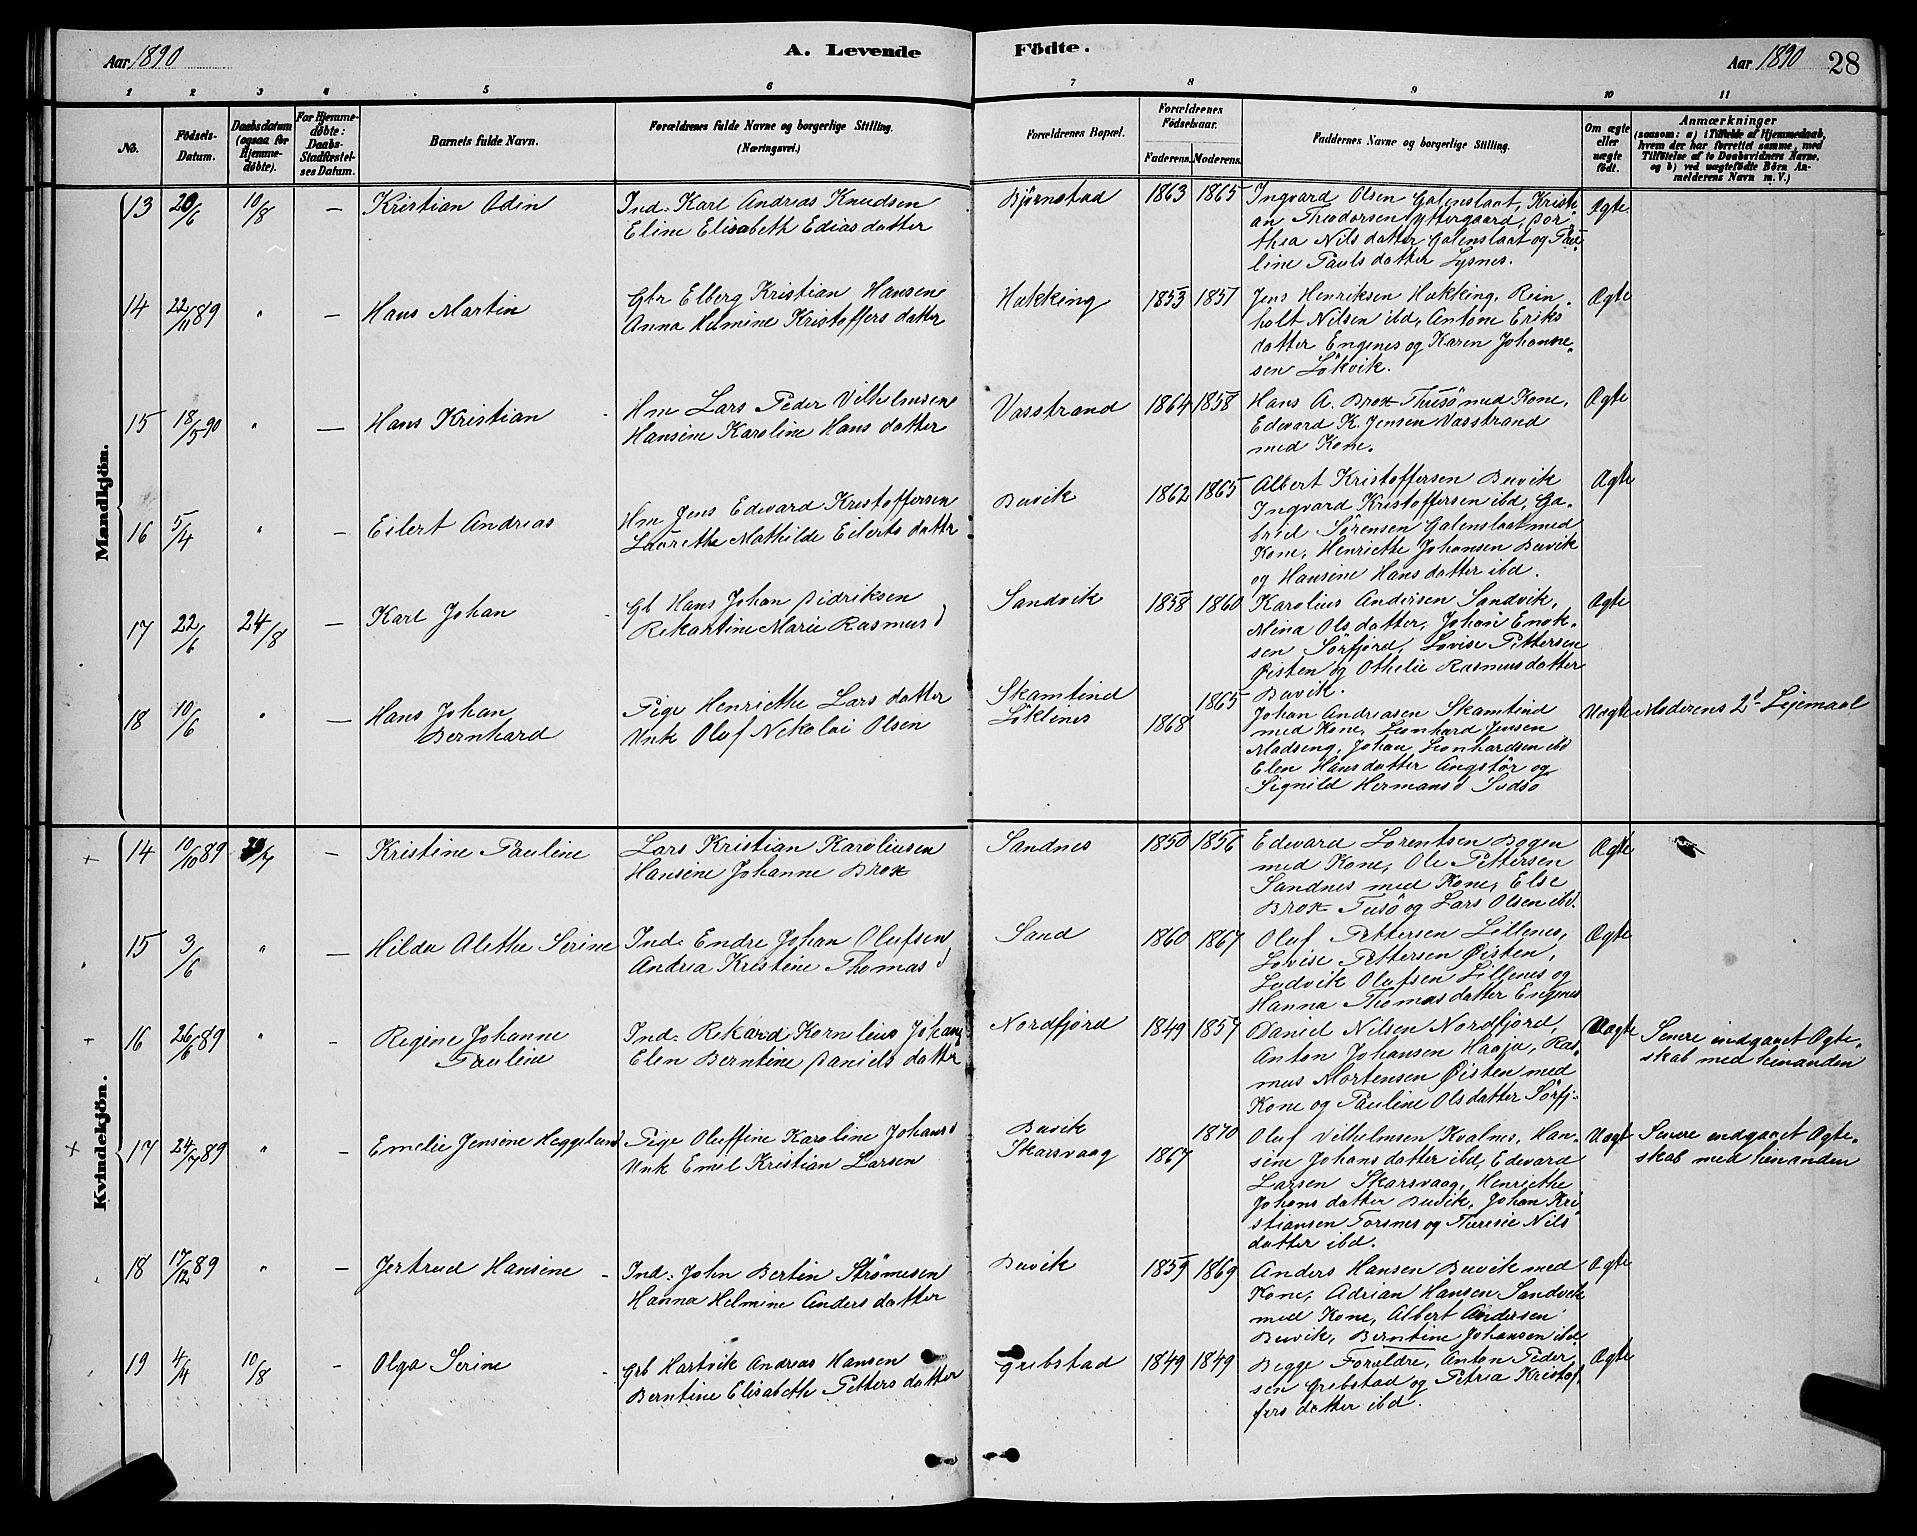 Aar 1890
A. Levende Födte.
Aar 1890 28
1 2 3 4 5 6 7 8 9 10 11
No.
Födsels-Datum.
Daabsdatum (ogsaa for Hjemme-döbte).
For Hjemme-döbte: Daabs-Stadfæstel-ses Datum.
Barnets fulde Navn.
Forældrenes fulde Navne og borgerlige Stilling. (Næringsvei.)
Forældrenes Bopæl.
Forældrenes Födselsaar.
Faderens. Moderens.
Faddernes Navne og borgerlige Stilling.
Om ægte eller uægte födt.
Anmærkninger
(saasom: a) i Tilfælde af Hjemmedaab, hvem der har forrettet samme, med Tilföielse af to Daabsvidners Navne, og b) ved uægtefödte Börn An-melderens Navn m. V.)
Mandkjön.
13 20/6 10/8 — Kristian Odin
Ind. Karl Andreas Knudsen
Eline Elisabeth Ediasdatter
Bjørnstad 1863 1865
Ingvard Olsen Galenslaat, Kristi-
an Theodorsen Yttergaard, Dor-
thea Nilsdatter Galenslaat og Pau-
line Paulsdatter Lysnes.
Ægte
14 22/11 89 " — Hans Martin
Gbr Elberg Kristian Hansen
Anna Helmine Kristoffersdatter
Hakking 1853 1851
Jens Henriksen Hakking, Rein-
holt Nilsen ibd, Antone Eriks
datter Engenes og Karen Johanne-
sen Løkvik.
Ægte
15 18/5 90 " — Hans Kristian
Hm Lars Peder Vilhelmsen
Hansine Karoline Hansdatter
Vasstrand 1864 1858
Hans A. Brox Thusö med Kone,
Edvard K. Jensen Vasstrand
med Kone.
Ægte
16 5/4 " — Eilert Andreas
Hm Jens Edvard Kristoffersen
Laurethe Mathilde Eilertsdatter
Buvik 1862 1865
Albert Kristoffersen Buvik
Ingvard Kristoffersen ibd, Ga-
briel Sörensen Galenslaat med
Kone, Henriethe Johansen Buvik
og Hansine Hansdatter ibd.
Ægte
17 22/6 24/8 — Karl Johan
Gb Hans Johan Didriksen
Rikartine Marie Rasmusd
Sandvik 1858 1860
Karolius Andersen Sandvik,
Mina Olsdatter, Johan Enok-
sen Sörfjord, Lovise Pettersen
Øisten og Othelie Rasmusdatter
Buvik.
Ægte
18 10/6 " — Hans Johan
Bernhard
Pige Henriethe Larsdatter
Unk Oluf Nikolai Olsen
Skamtind 1865
1868
Johan Andreasen Skamtind
med Kone, Leonhard Jensen
Madseng, Johan Leonhardsen ibd
Elen Hansdatter Angstör og
Signild Hermansd
Uægte Moderens 2d Lejemaal
Kvindekjön.
+ 14 10/10 89 — Kristine Pauline
Lars Kristian Karoliusen
Hansine Johanne Brox
Sandnes 1850 1856
Edvard Lorentsen Bogen
med Kone, Ole Pettersen
Sandnes med Kone, Else
Brox Tusö og Lars Olsen ibd.
Ægte
15 3/6 " — Hilda Alethe Serine
Ind. Endre Johan Olufsen
Andrea Kristine Thomasd
Sand 1860 1867
Oluf Pettersen Lillenes,
Lovise Pettersen Øisten,
Ludvik Olufsen Lillenes og
Hanna Thomasdatter Engenes
Ægte
+ 16 26/6 89 " - Regine Johanne
Pauline
Ind. Rikard Kornelius Johans
Elen Berntine Danielsdatter
Nordfjord 1849 1857
Daniel Nilsen Nordfjord,
Anton Johansen Haaja, Ras-
mus Mortensen Øisten med
Kone og Pauline Olsdatter Sörfj.
Uægte Senere indgaaet Ægte-
skab med hinanden
+ 17 24/7 89 " — Emelie Jensine Heggelund
Pige Oluffine Karoline Johansd
Unk Emil Kristian Larsen
Buvik 1870
Skarsvaag 1867
Oluf Vilhelmsen Kvalnes, Han-
sine Johansdatter ibd, Edvard
Larsen Skarsvaag, Henriethe
Johansdatter Buvik, Johan Kri-
stiansen Forsnes og Theresie Nils
datter ibd.
Uægt Senere indgaaet Ægte-
skab med hinanden
18 17/12 89 " — Jertrud Hansine
Ind. John Bertin Strömesen
Hanna Helmine Andersdatter
Buvik 1859 1869
Anders Hansen Buvik med
Kone, Adrian Hansen Sandvik
med Kone, Albert Andersen
Buvik, Berntine Johansen ibd
Ægte
19 4/4 10/8 - Olga Serine
Grb Hartvik Andreas Hansen
Berntine Elisabeth Pettersdatter
Grebstad 1849 1849
Begge Forældre, Anton Peder
sen Grebstad og Petria Kristof-
fersdatter ibd.
Ægte